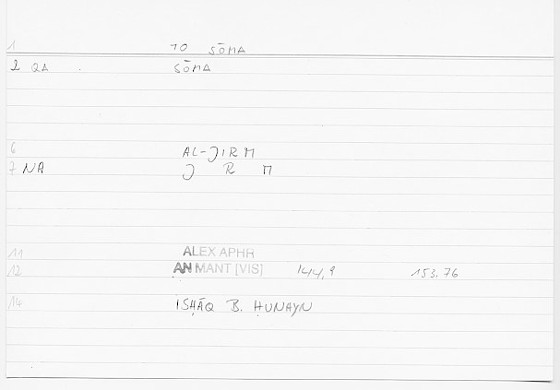 1 TO SŌMA
2 QA SŌMA
6 AL-JIRM
7 NA J R M
11 ALEX APHR
12 AN MANT [VIS] 144,9 153.76
14 ISḤĀQ B. ḤUNAYN